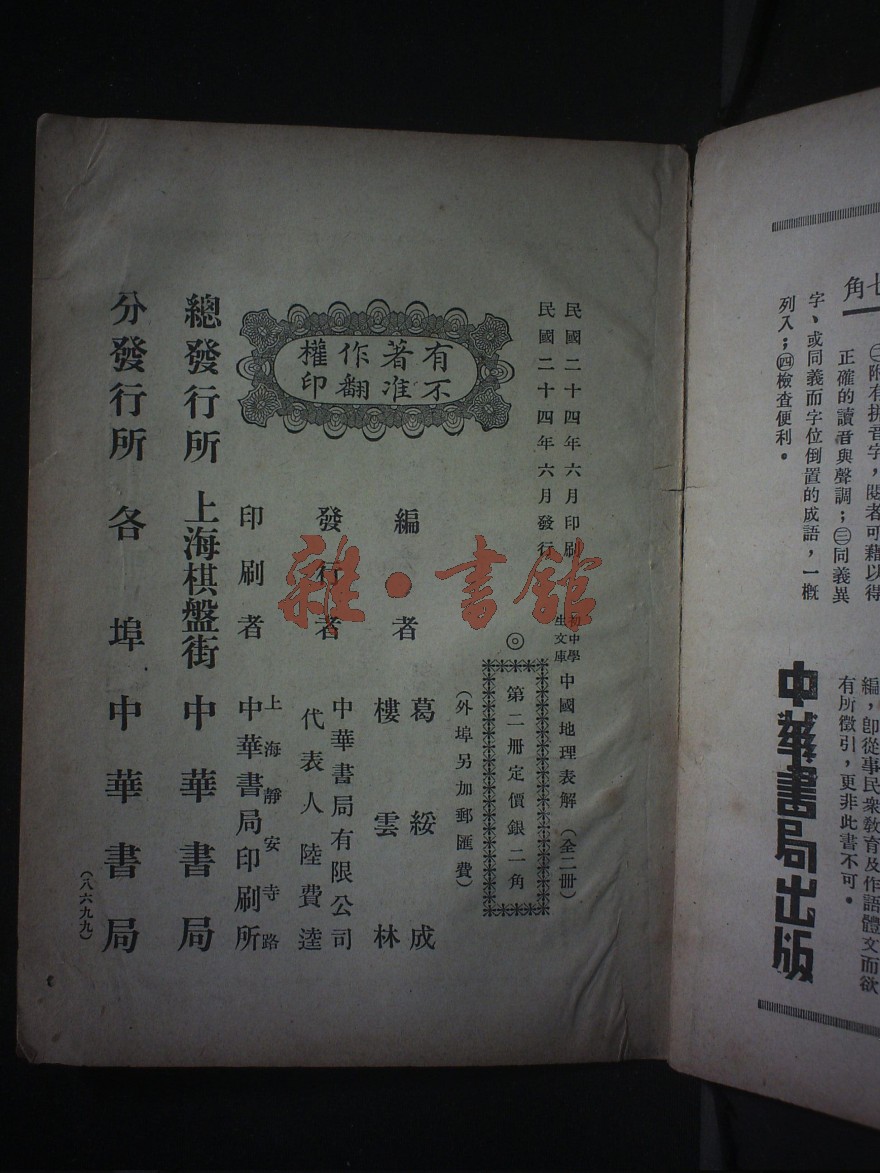 角
㊁附有拼音字，閱者可藉以得
正確的讀音與聲調；㊂同義異
字、或同義而字位倒置的成語，一概
列入；㊃檢查便利。
編，卽從事民衆敎育及作語體文而欲
有所徵引，更非此書不可。
中華書局出版
民國二十四年六月印刷
民國二十四年六月發行
初中學生文庫 中國地理表解（全二冊）
◎
第二冊定價銀二角
（外埠另加郵匯費）
有著作權
不准翻印
編者 葛綏成
樓雲林
發行者 中華書局有限公司
代表人 陸費逵
印刷者 上海靜安寺路
中華書局印刷所
總發行所 上海棋盤街 中華書局
分發行所 各埠 中華書局
（八六九九）
雜·書館